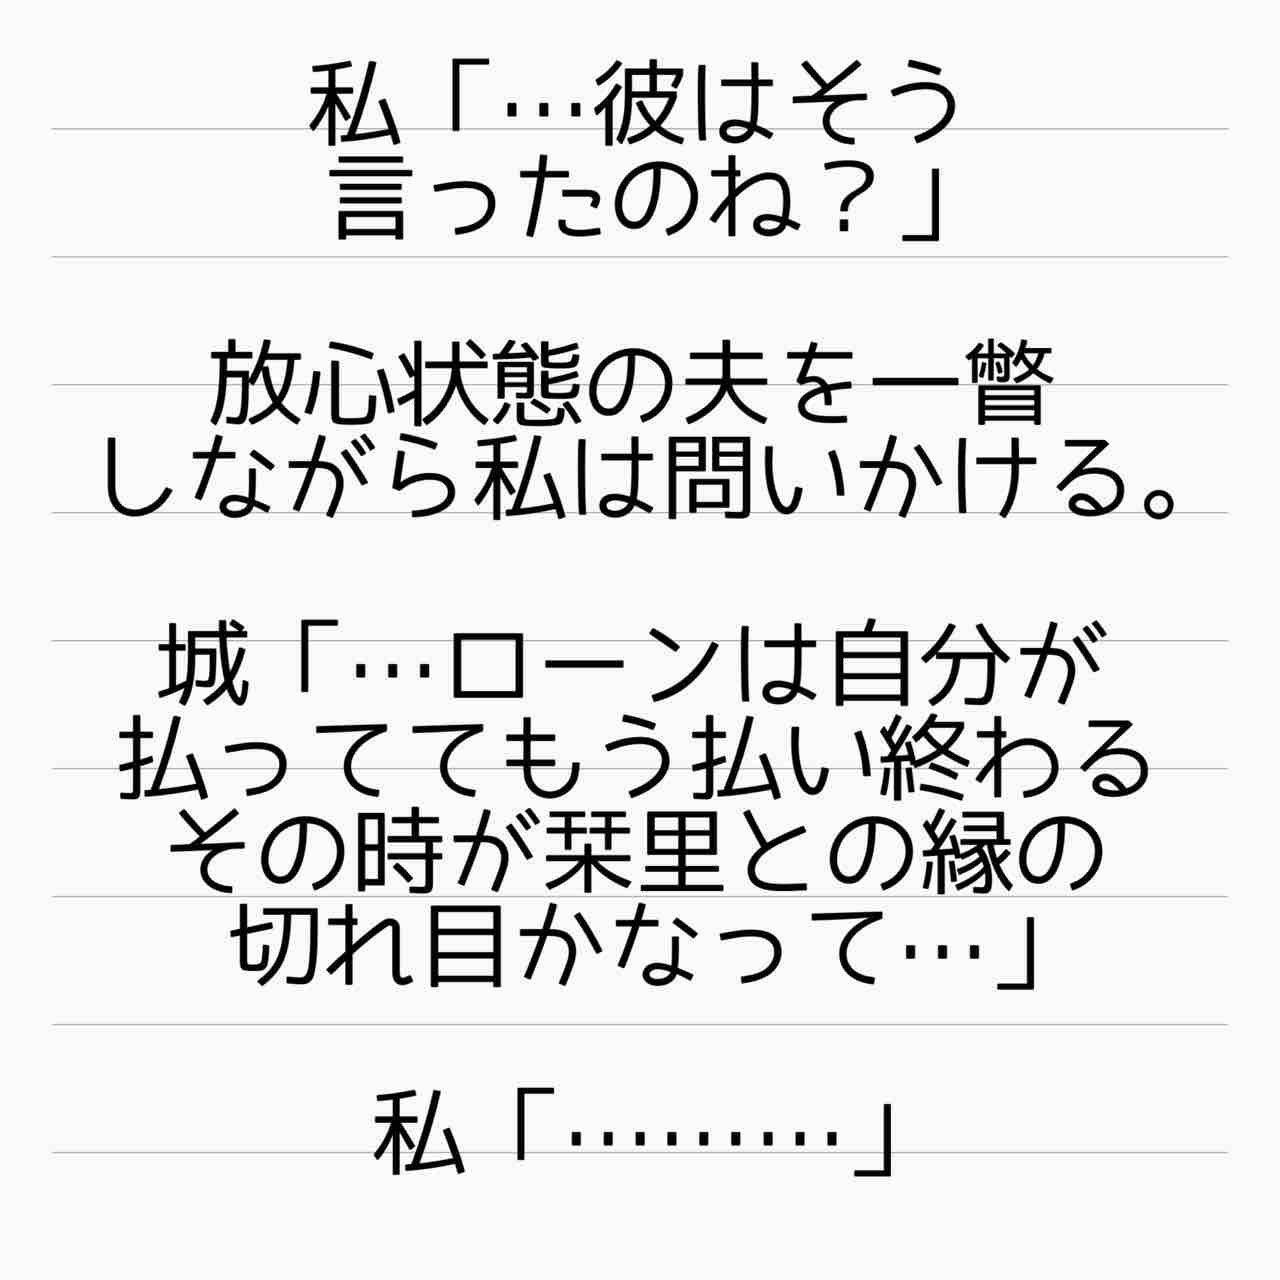 私「…彼はそう
言ったのね？」
放心状態の夫を一瞥
しながら私は問いかける。
城「…ローンは自分が
払っててもう払い終わる
その時が栞里との縁の
切れ目かなって…」
私「………」